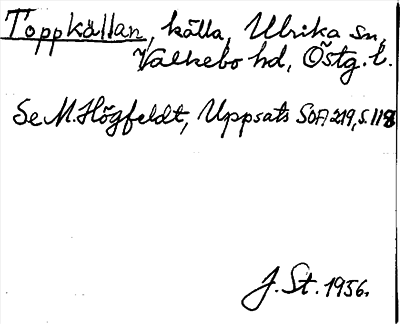 Toppkällan, källa, Ulrika sn,
Valkebo hd, Östg. l.
Se M. Högfeldt, Uppsats SOFA 219, s. 118
J. St. 1956.